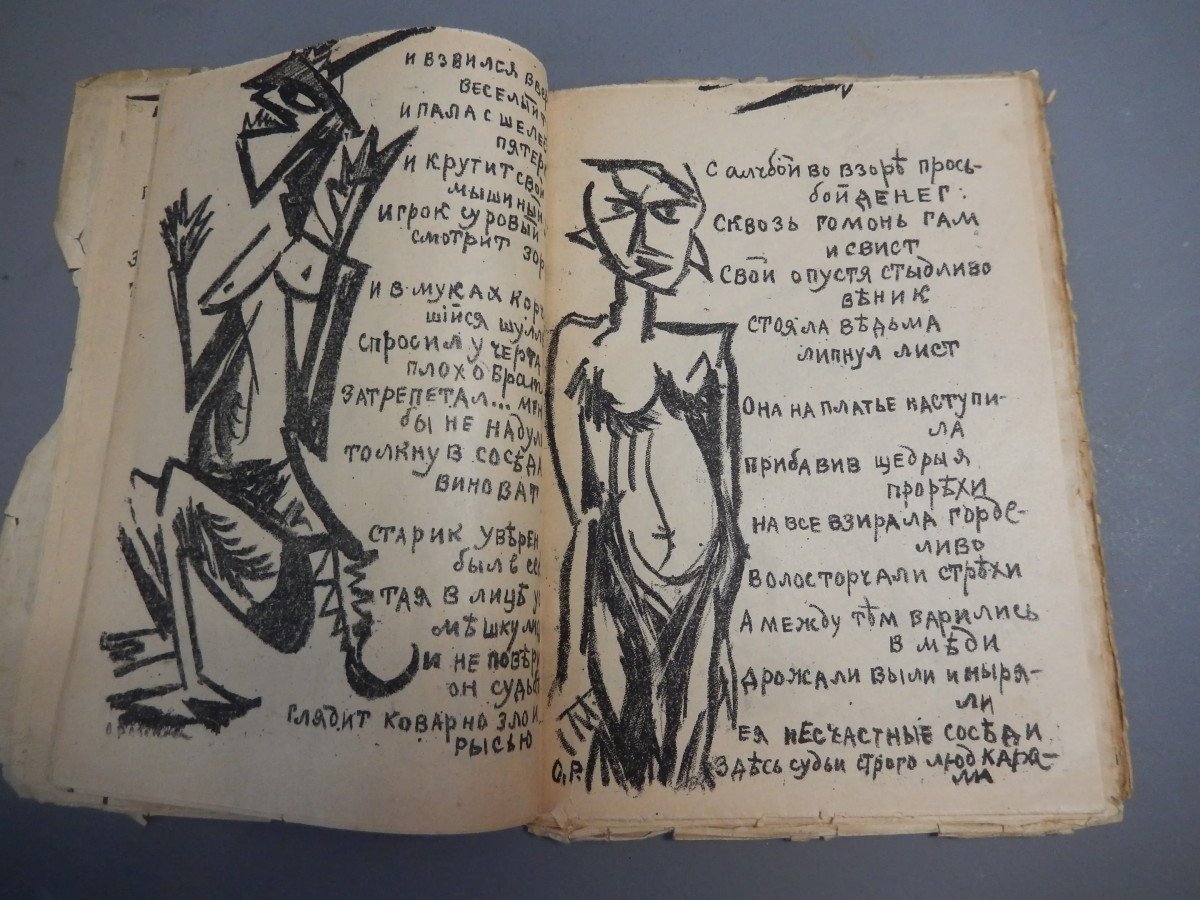 и взвился в
веселый
и пала с
и крутит
игрок суровый
смотрит
и в муках
шійся
спросил у черта
плохо
затрепетал...
бы не
толкнув сосѣда
виноват
старик увѣрен
был в
тая в лицѣ
и не
он
глядит коварно злои
рысью
С алчбой во взорѣ прось-
бой денег:
Сквозь гомонь гам
и свист
Свой опустя стыдливо
вѣник
стояла вѣдьма
липнул лист
Она на платье наступи-
ла
прибавив щедрыя
прорѣхи
на все взирала горде-
ливо
волос торчали стрѣхи
А между тѣм варились
в мѣди
дрожали выли и ныря-
ли
ея несчастные сосѣди
здѣсь судьи строго люд кара-
ли
О.Р.